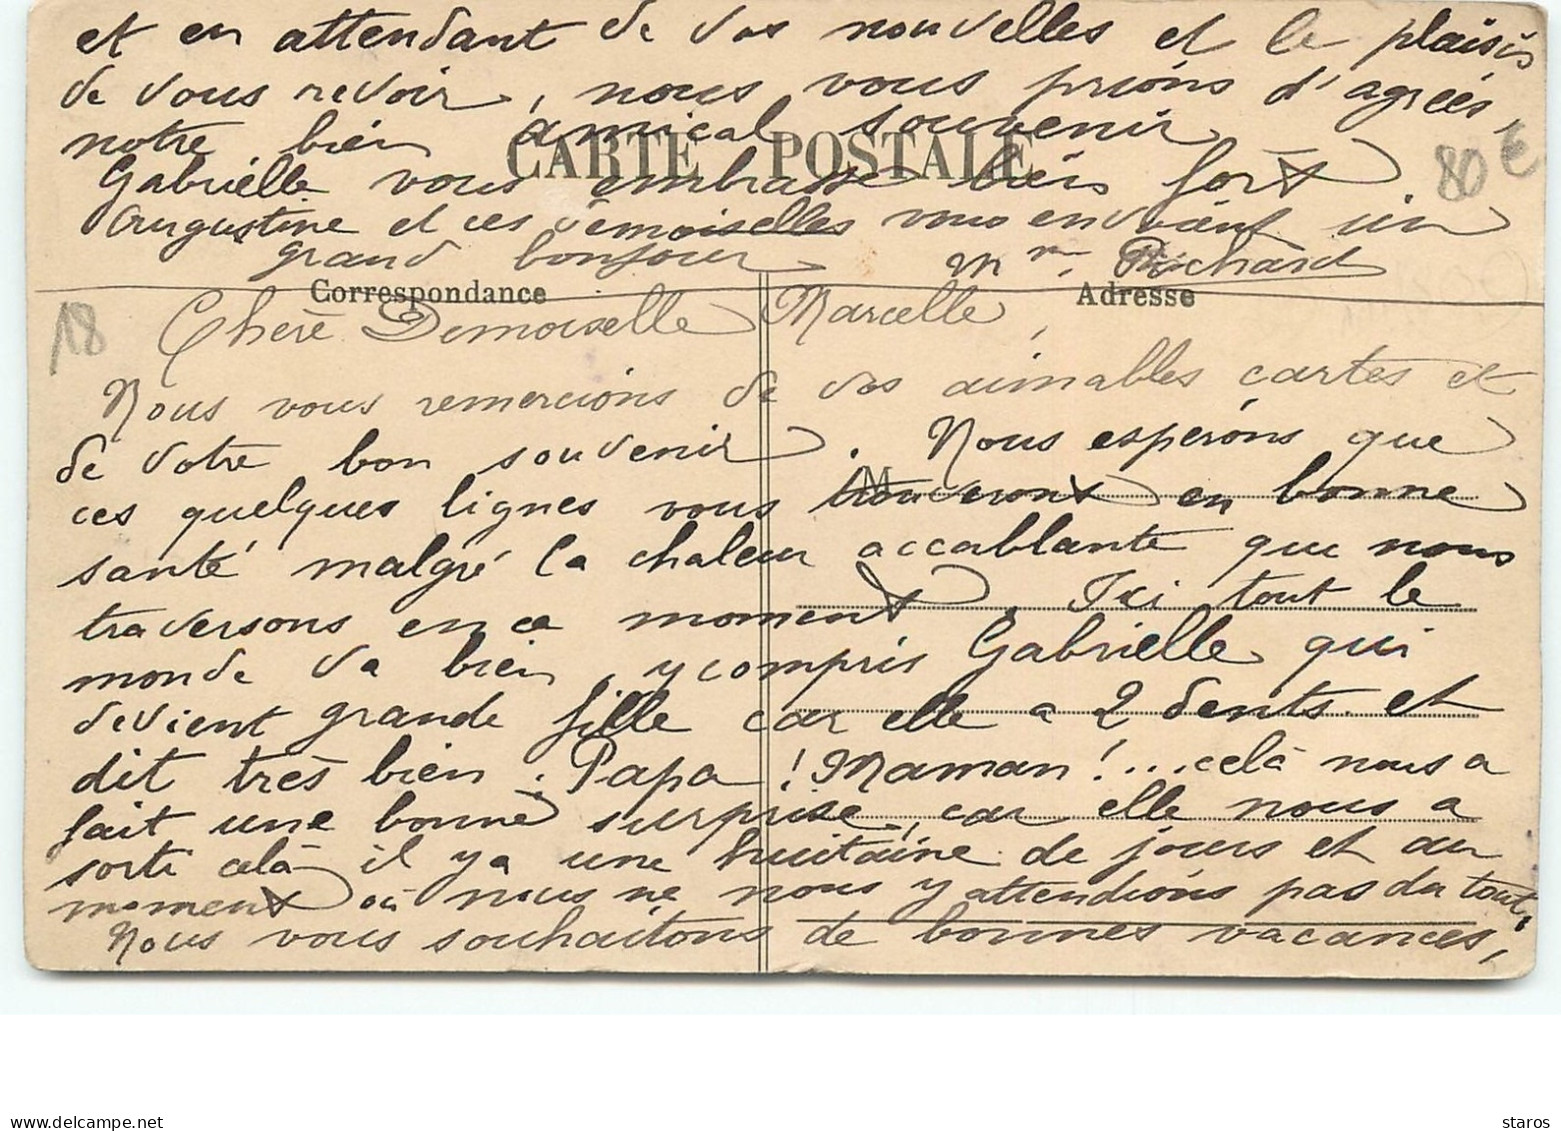 et en attendant de vos nouvelles et le plaisir
de vous revoir, nous vous prions d'agréer,
notre bien amical souvenir
CARTE POSTALE
80 €
Gabrielle vous embrasse bien fort.
Augustine et ces demoiselles vous envoient un
grand bonjour
Mme Richard
Correspondance
Adresse
18
Chère Demoiselle Marcelle,
Nous vous remercions de vos aimables cartes et
de votre bon souvenir. Nous espérons que
M
ces quelques lignes vous trouverons en bonne
santé malgré la chaleur accablante que nous
traversons en ce moment. Ici tout le
monde va bien, y compris Gabrielle qui
devient grande fille car elle a 2 dents et
dit très bien. Papa! Maman!... celà nous a
fait une bonne surprise, car elle nous a
sorti celà il y a une huitaine de jours et au
moment où nous ne nous y attendions pas du tout,
Nous vous souhaitons de bonnes vacances,
delcampe.net
staros